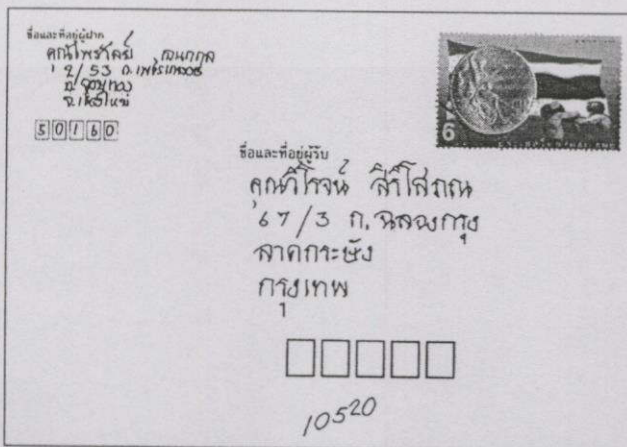 ชื่อและที่อยู่ผู้ฝาก
คุณไพรวัลย์
2/53 ถ.เพชรเกษม
อ.จอมทอง
จ.เชียงใหม่
50160
ชื่อและที่อยู่ผู้รับ
คุณวิโรจน์ สิริโสภณ
67/3 ถ.ฉลองกรุง
ลาดกระบัง
กรุงเทพ
10520
6